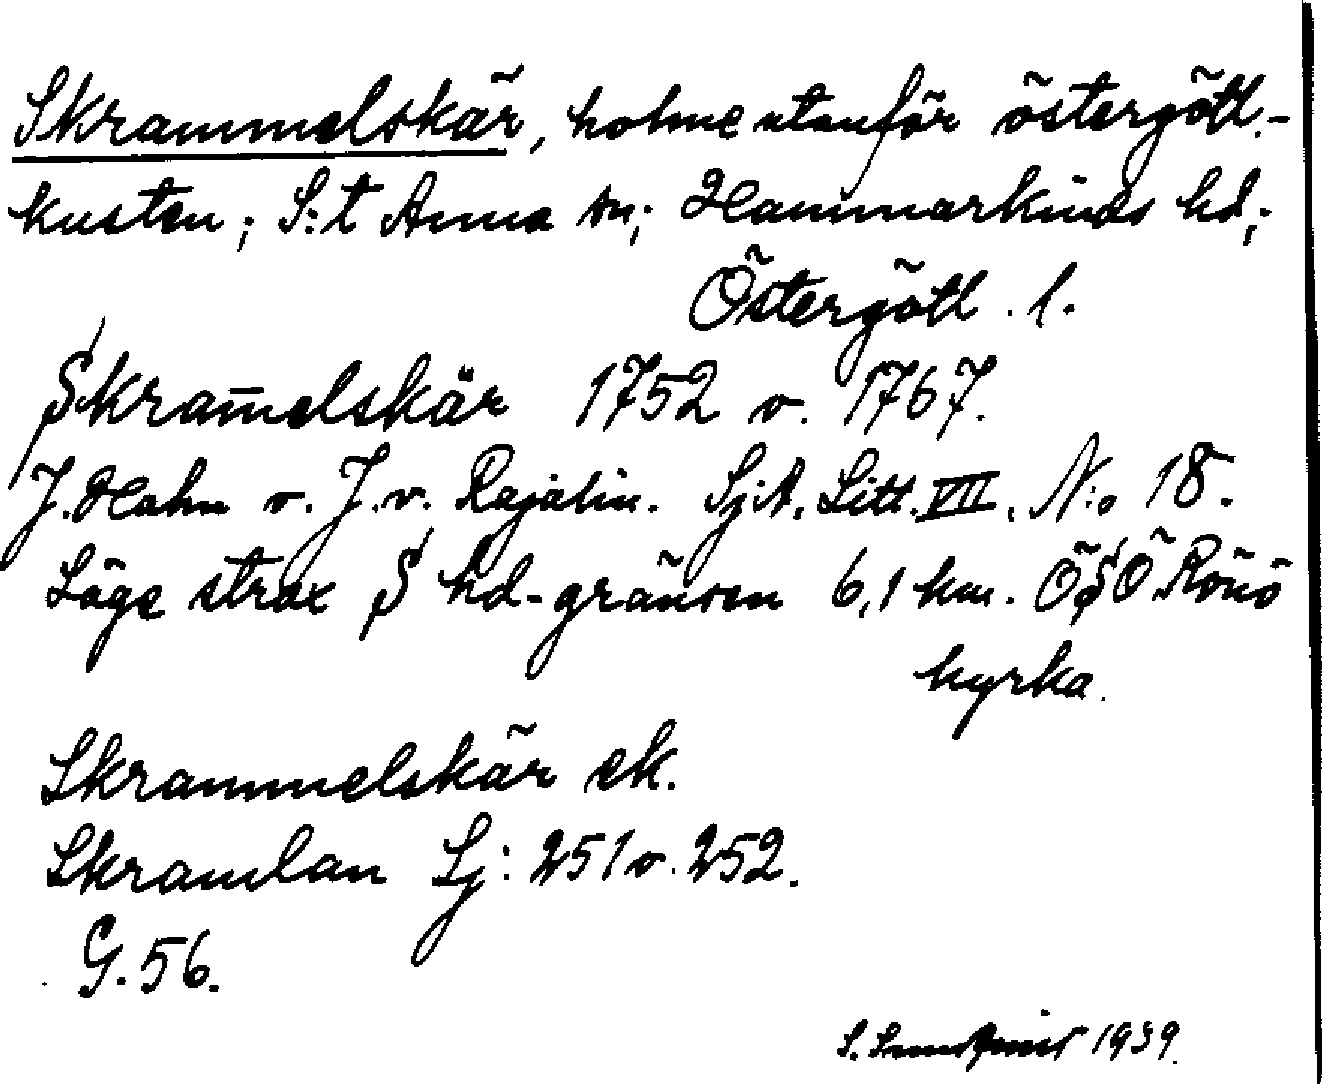 Skrammelskär, holme utanför östergötl.-
kusten; S:t Anna sn; Hammarkinds hd;
Östergötl. l.
Skram̅elskär 1752 o. 1767.
J. Hahn o. J. v. Rajalin. SjA. Litt. VII. N:o 18.
Läge strax S hd-gränsen 6,1 km. ÖSÖ. Rönö
kyrka.
Skrammelskär ek.
Skramlan Sj: 251 o. 252.
G. 56.
S. Lundqvist 1939.